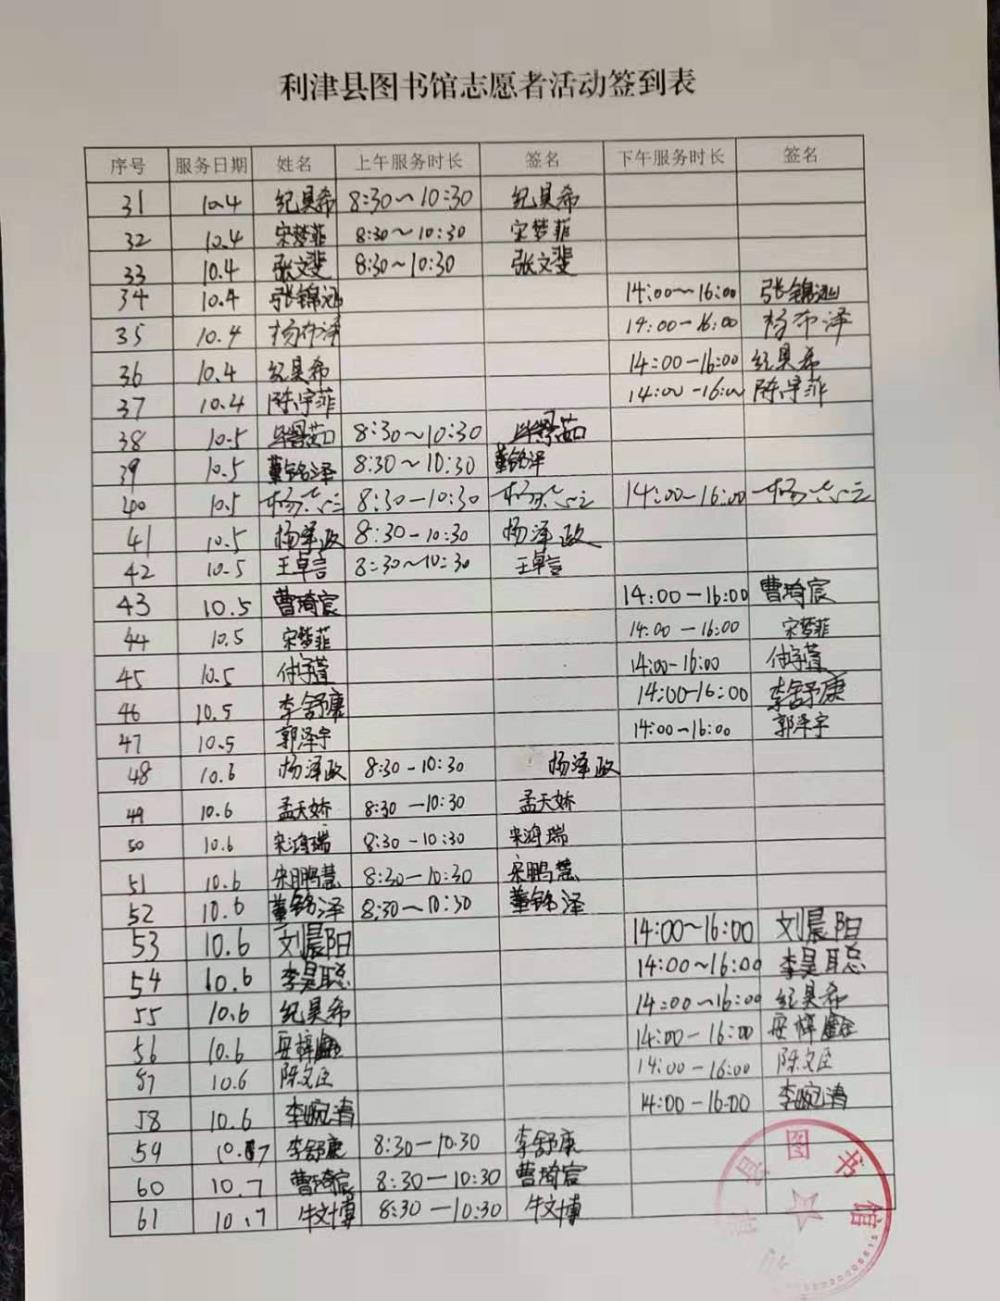 利津县图书馆志愿者活动签到表
序号 服务日期 姓名 上午服务时长 签名 下午服务时长 签名
31 10.4 纪昊希 8:30~10:30 纪昊希
32 10.4 宋梦菲 8:30~10:30 宋梦菲
33 10.4 张文斐 8:30~10:30 张文斐
34 10.4 张锦 14:00~16:00 张锦
35 10.4 杨布泽 14:00-16:00 杨布泽
36 10.4 纪昊希 14:00-16:00 纪昊希
37 10.4 陈宇菲 14:00-16:00 陈宇菲
38 10.5 8:30~10:30
39 10.5 董铭泽 8:30~10:30 董铭泽
40 10.5 杨 8:30-10:30 杨 14:00-16:00 杨
41 10.5 杨泽政 8:30-10:30 杨泽政
42 10.5 王卓言 8:30~10:30 王卓言
43 10.5 曹琦宸 14:00-16:00 曹琦宸
44 10.5 宋梦菲 14:00-16:00 宋梦菲
45 10.5 付子萱 14:00-16:00 付子萱
46 10.5 李舒康 14:00-16:00 李舒康
47 10.5 郭泽宇 14:00-16:00 郭泽宇
48 10.6 杨泽政 8:30-10:30 杨泽政
49 10.6 孟天娇 8:30-10:30 孟天娇
50 10.6 宋鸿瑞 8:30-10:30 宋鸿瑞
51 10.6 宋鹏慧 8:30-10:30 宋鹏慧
52 10.6 董铭泽 8:30-10:30 董铭泽
53 10.6 刘晨阳 14:00~16:00 刘晨阳
54 10.6 李昊聪 14:00~16:00 李昊聪
55 10.6 纪昊希 14:00~16:00 纪昊希
56 10.6 安梓 14:00-16:00 安梓
57 10.6 陈文 14:00-16:00 陈文
58 10.6 李婉清 14:00-16:00 李婉清
59 10.7 李舒康 8:30-10:30 李舒康
60 10.7 曹琦宸 8:30-10:30 曹琦宸
61 10.7 牛文博 8:30-10:30 牛文博
县图书馆